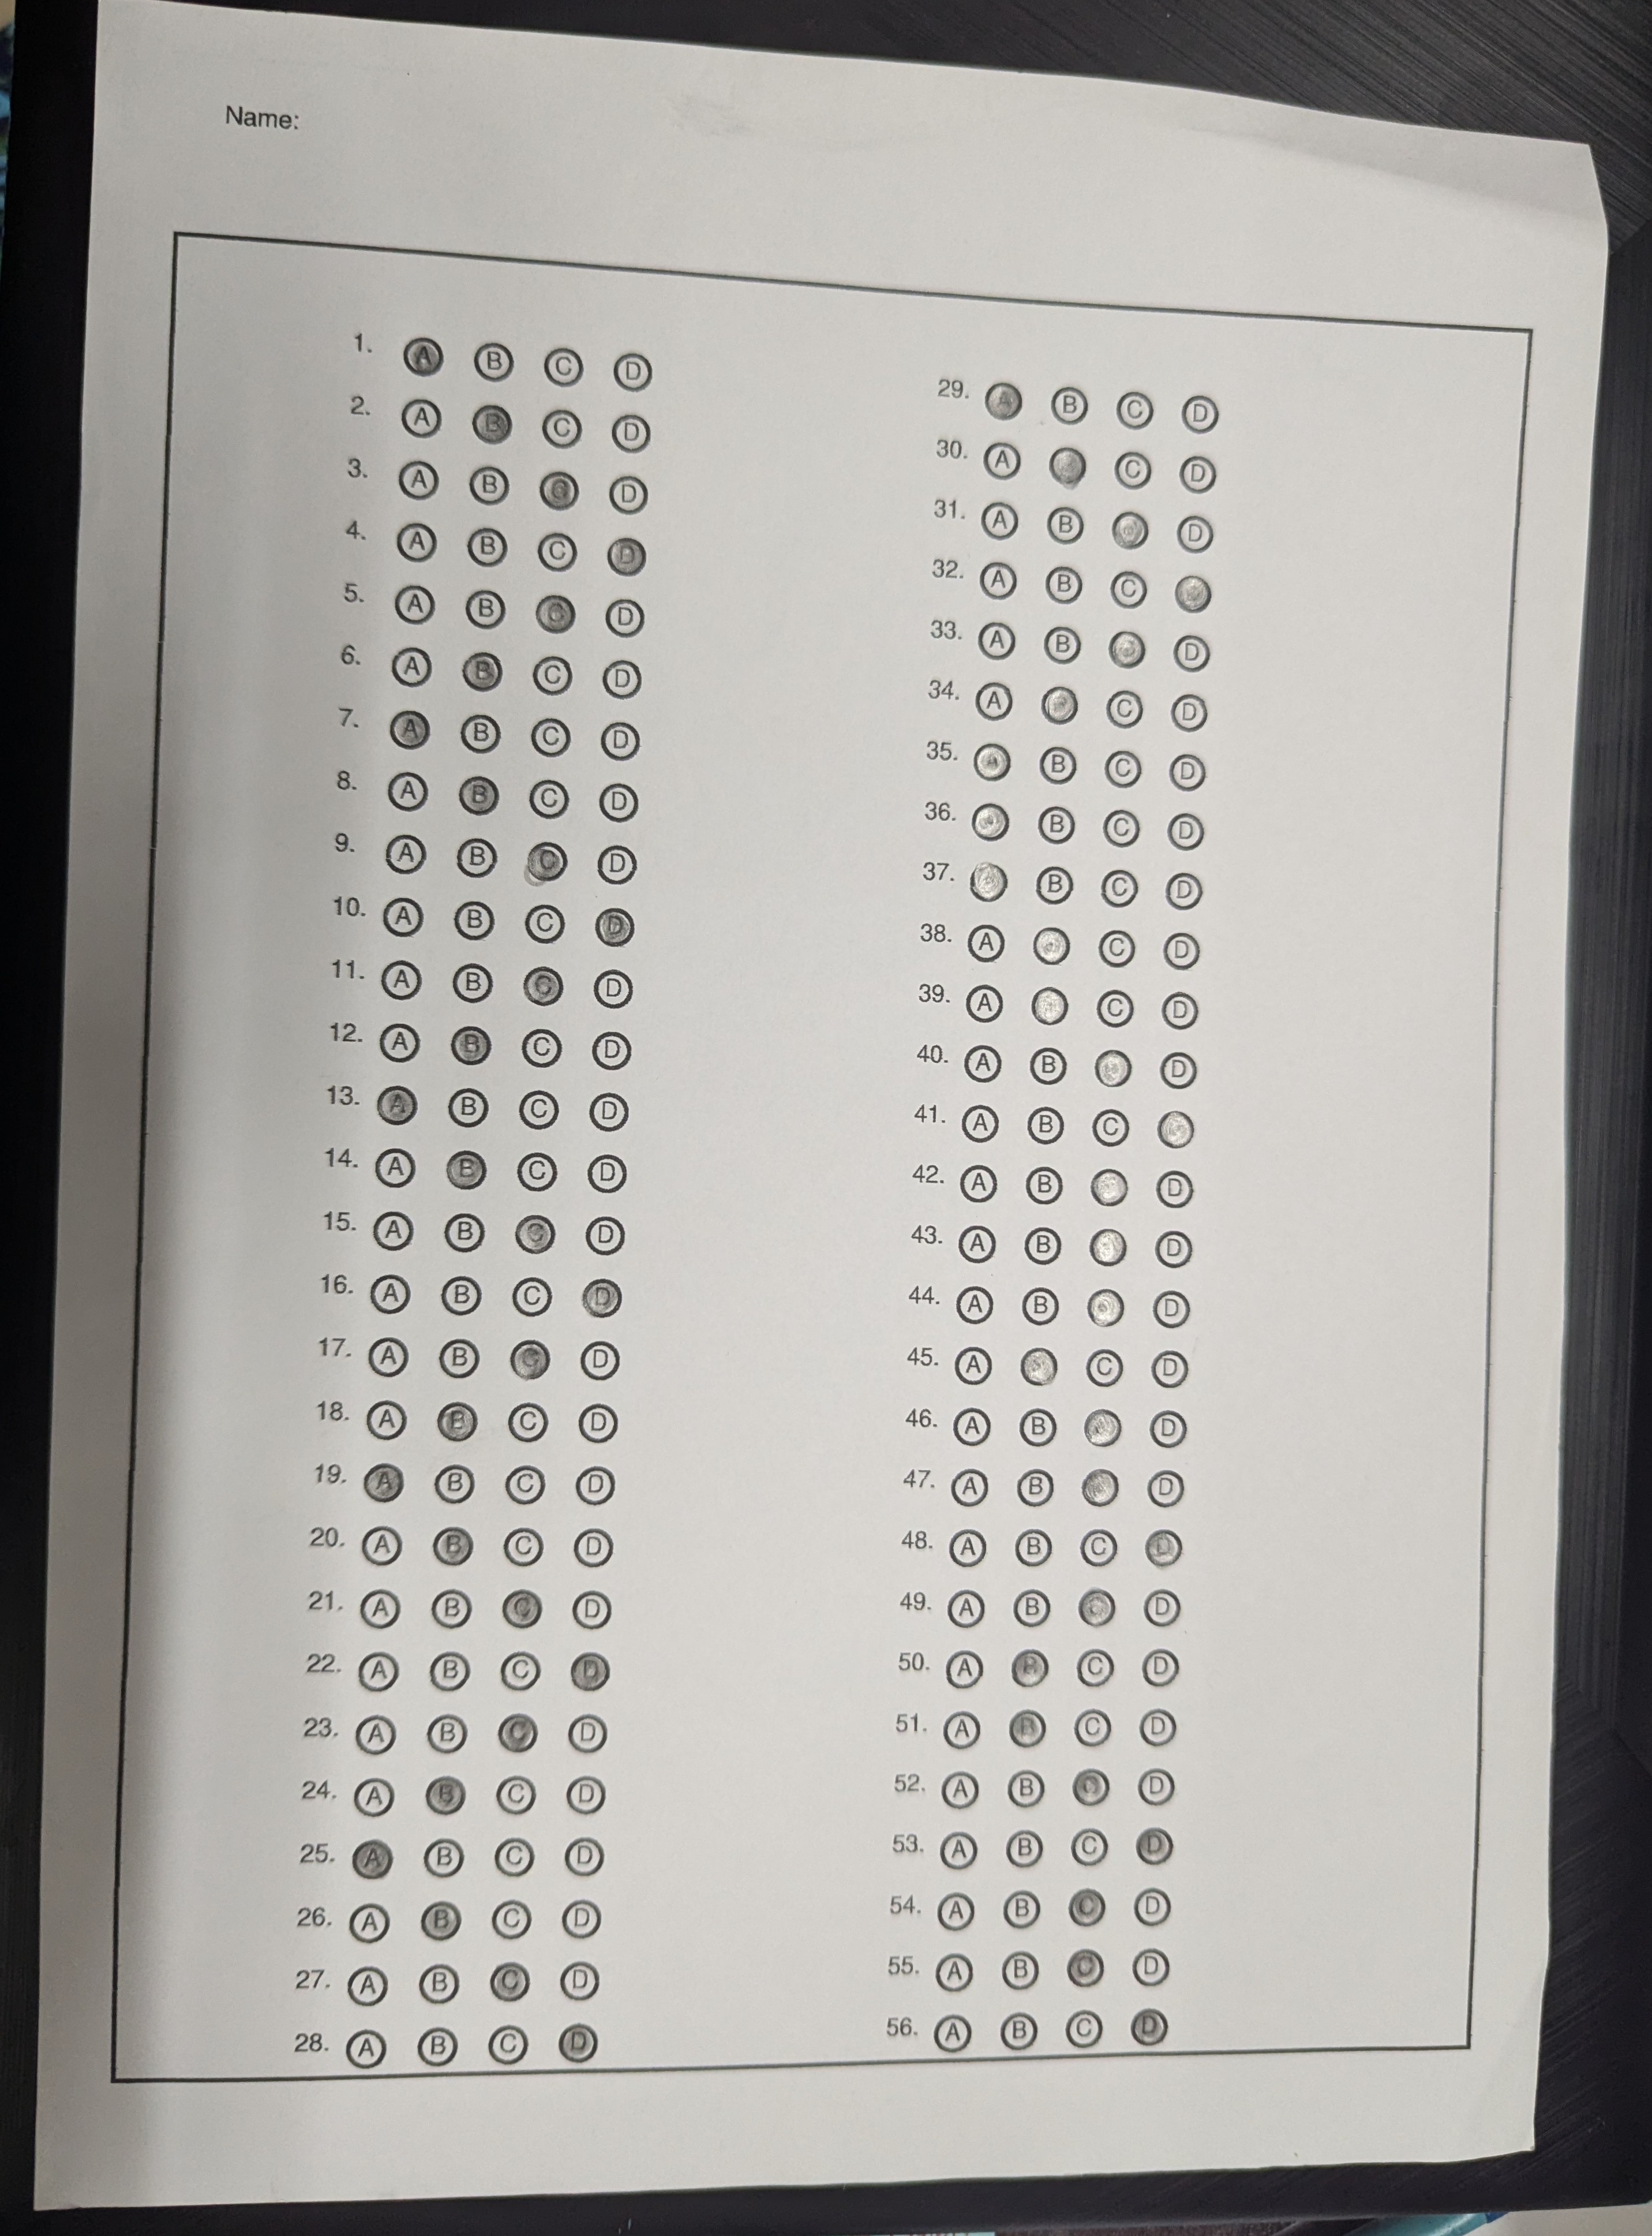 Name:
1. A B C D
2. A B C D
3. A B C D
4. A B C D
5. A B C D
6. A B C D
7. A B C D
8. A B C D
9. A B C D
10. A B C D
11. A B C D
12. A B C D
13. A B C D
14. A B C D
15. A B C D
16. A B C D
17. A B C D
18. A B C D
19. A B C D
20. A B C D
21. A B C D
22. A B C D
23. A B C D
24. A B C D
25. A B C D
26. A B C D
27. A B C D
28. A B C D
29. A B C D
30. A C D
31. A B D
32. A B C
33. A B D
34. A C D
35. A B C D
36. B C D
37. B C D
38. A C D
39. A C D
40. A B D
41. A B C
42. A B D
43. A B D
44. A B D
45. A C D
46. A B D
47. A B D
48. A B C D
49. A B C D
50. A B C D
51. A B C D
52. A B C D
53. A B C D
54. A B C D
55. A B C D
56. A B C D